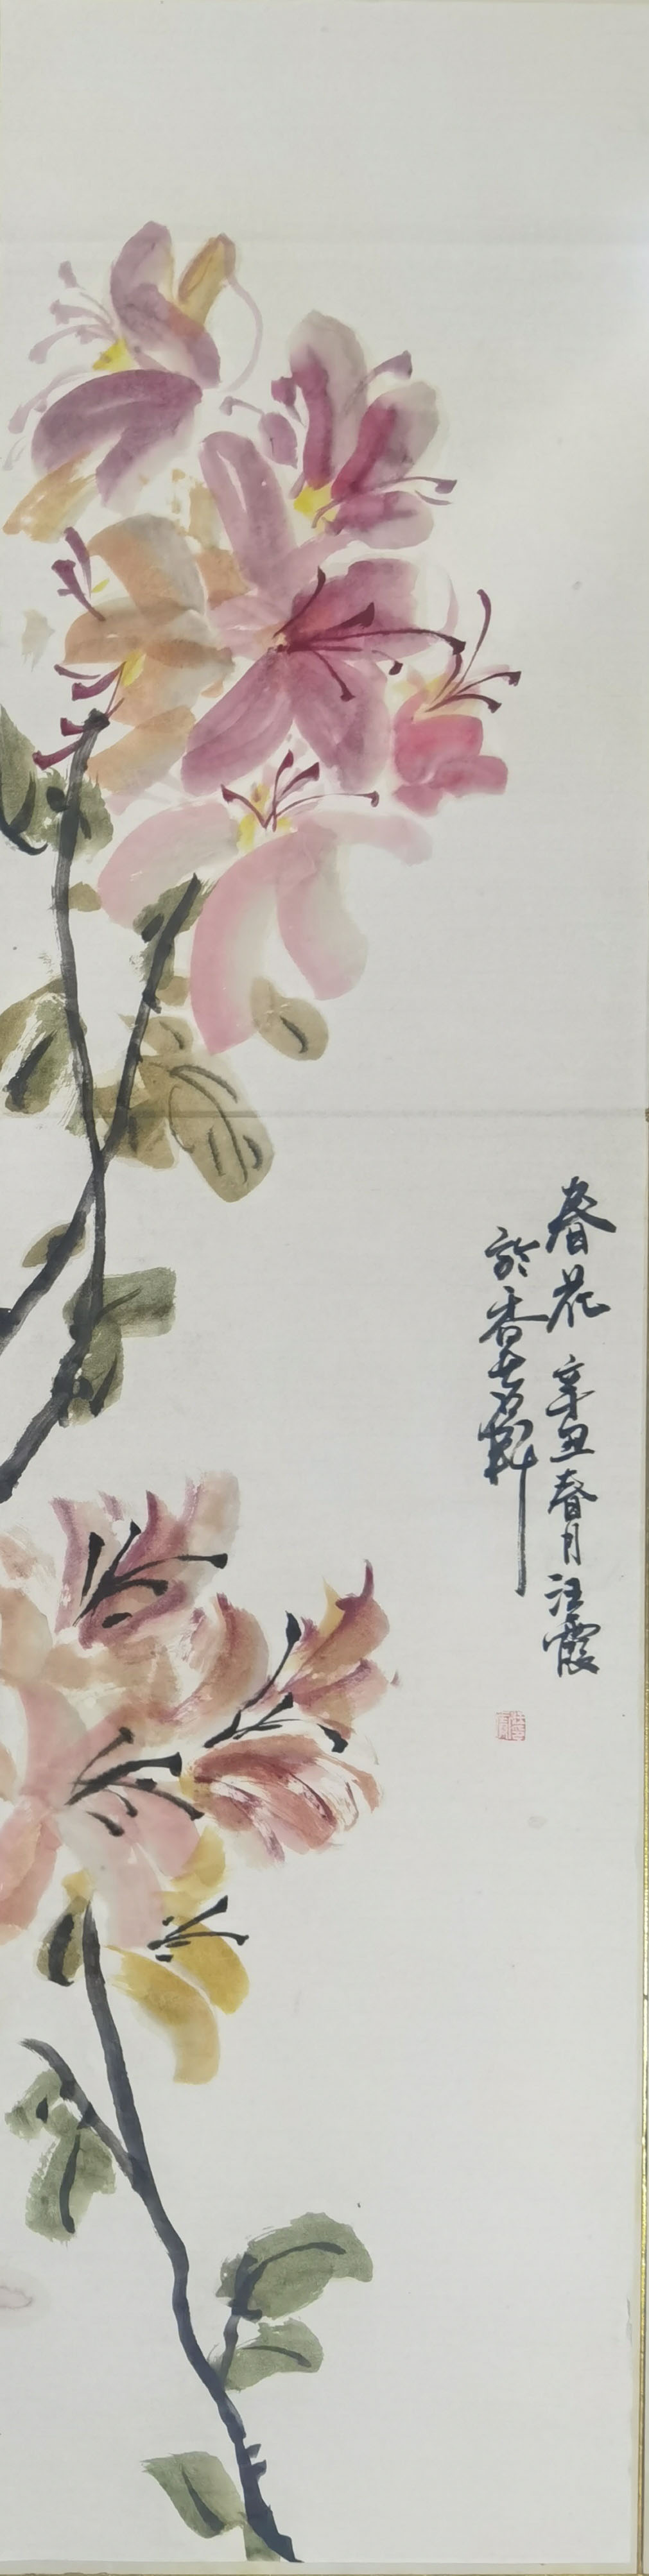 春花 辛丑春月 汪霞
於香